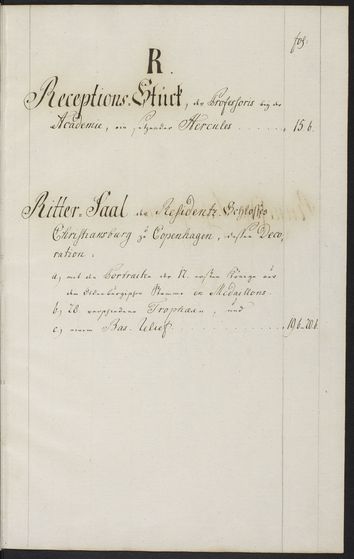 fol:
R.
Receptions-Stück, des Professoris bey der
Academie, ein sitzender Hercules . . . . . . 15 b.
Ritter-Saal der Residentz-Schlosses
Christiansburg zu Copenhagen, dessen Deco,
ration.
a, mit den Portraiten der 12. ersten Könige aus
dem Oldenburgischen Stamme en Medaillons.
b, 20. verschiedene Trophaeen, und
c, einem Bas-Relief . . . . . . . . 19 b-20 b.